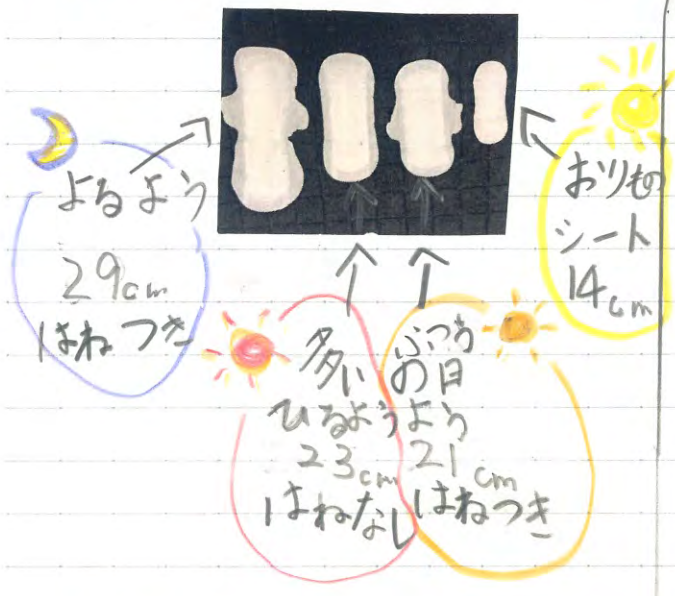 よるよう
29cm
はねつき
多い
ひるよう
23cm
はねなし
ふつう
の日
よう
21cm
はねつき
おりもの
シート
14cm